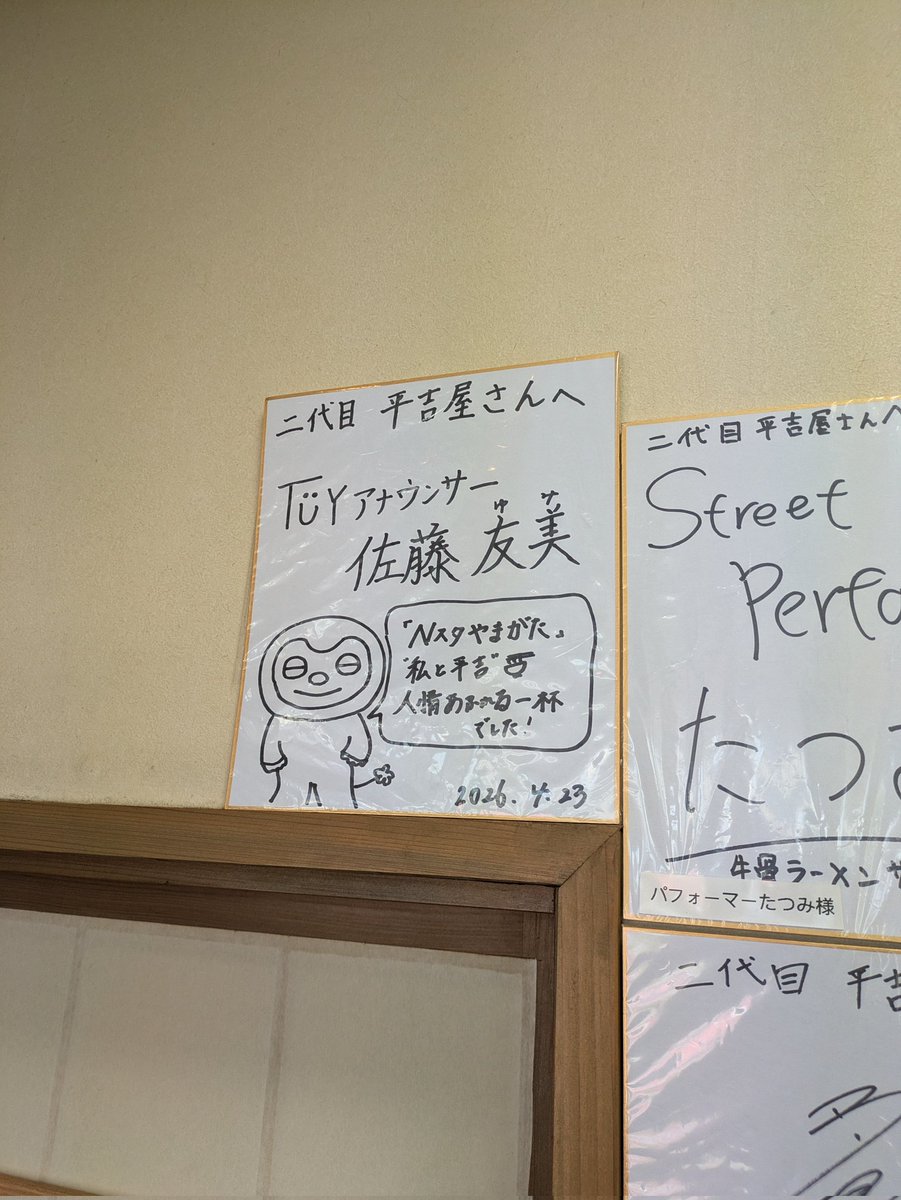 二代目 平吉屋さんへ
TUYアナウンサー
佐藤 友美
ゆ サ
「Nスタやまがた」
"私と平吉"
人情あふれる一杯
でした!
2026.4.23
二代目 平吉屋さんへ
Street
Perfo
たつ
ラーメン
パフォーマーたつみ様
二代目 平吉